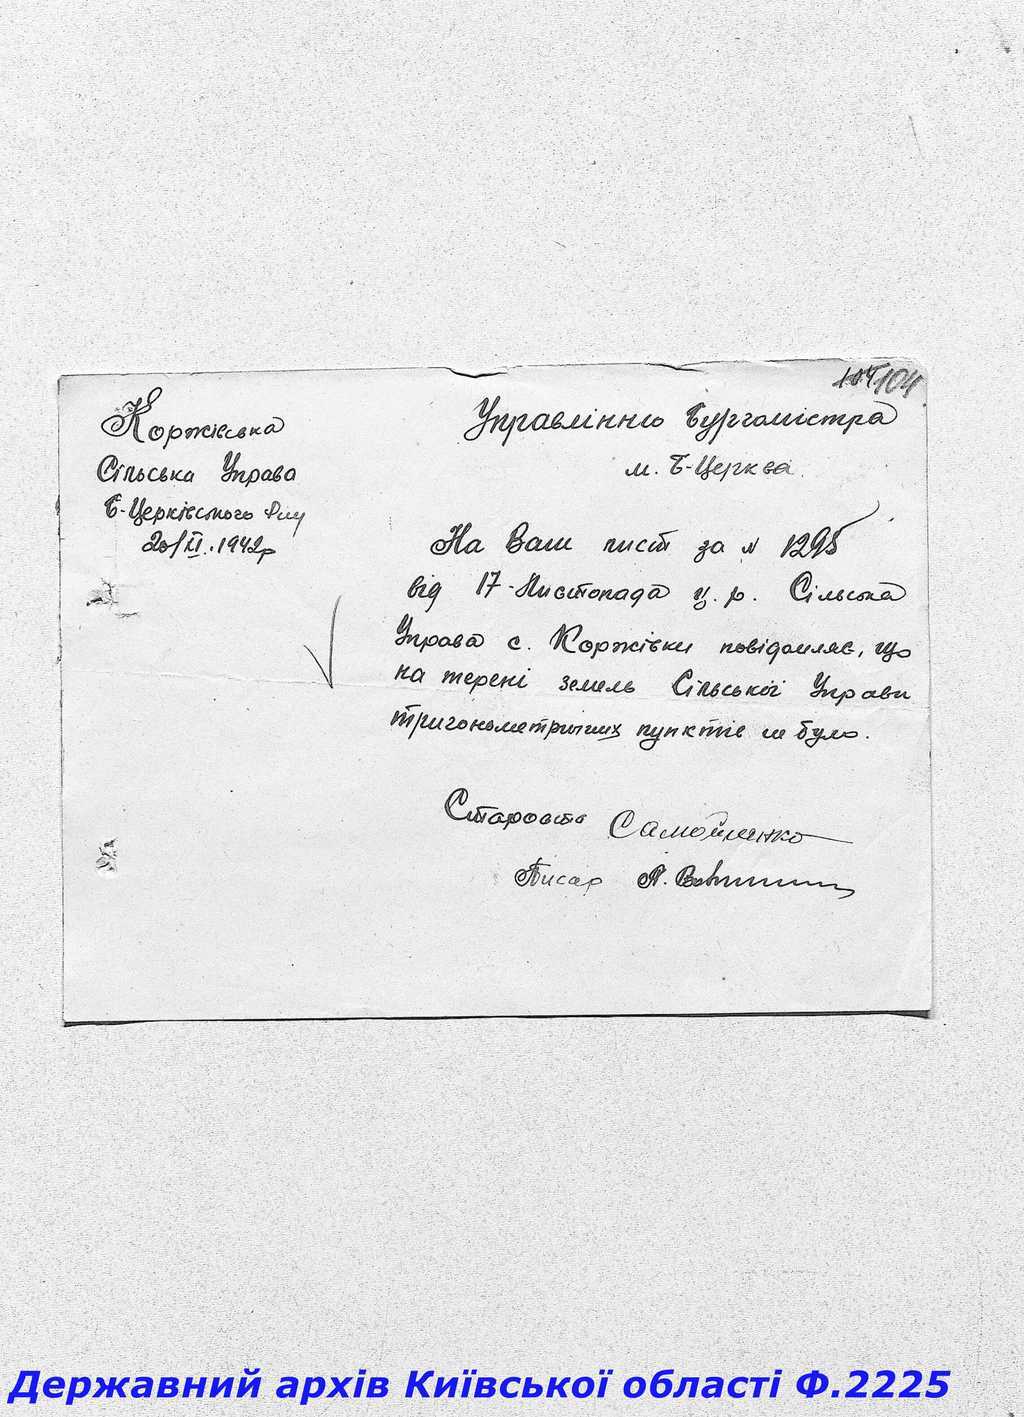 104 104
Коржівська
Сільська Управа
Б-Церківського р-ну
20/XI.1942р
Управлінню Бургомістра
м. Б-Церква.
На Ваш лист за № 1295
від 17-Листопада ц. р. Сільська
Управа с. Коржівки повідомляє, що
на терені земель Сільської Управи
тригонометричних пунктів не було.
Староста Самойленко
Писар П.
Державний архів Київської області Ф.2225